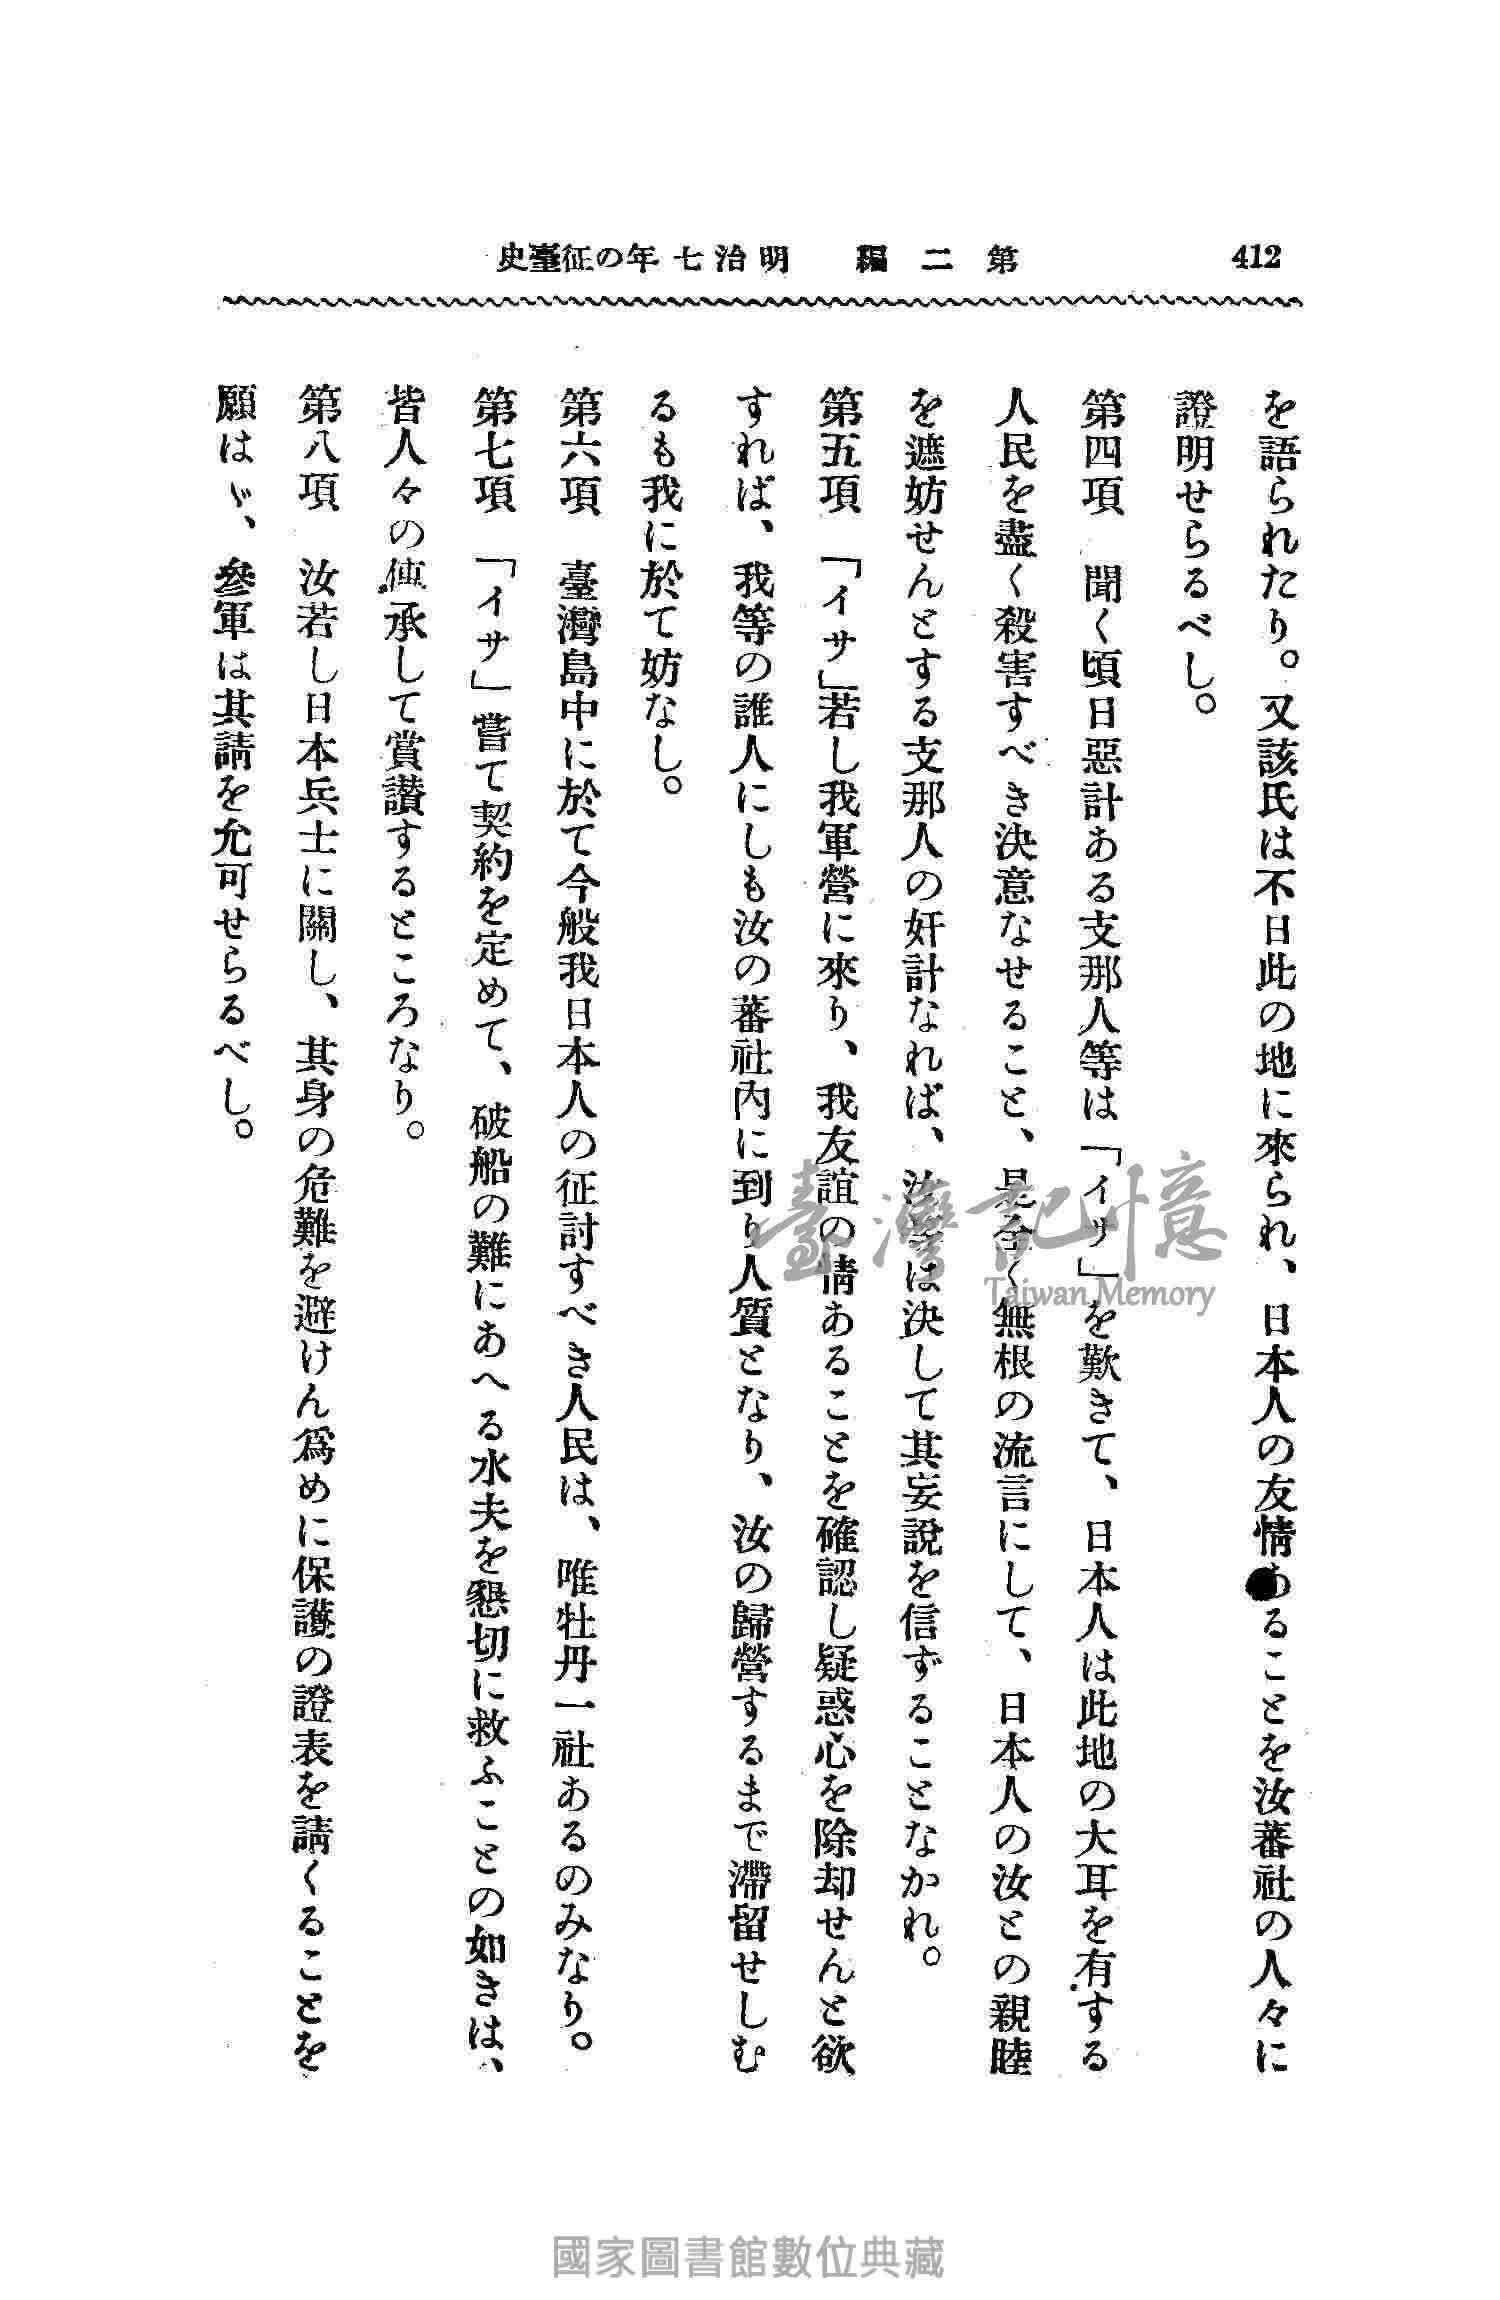 412
第二編　明治七年の征臺史
を語られたり。又該氏は不日此の地に來られ、日本人の友情あることを汝蕃社の人々に
證明せらるべし。
第四項　聞く頃日惡計ある支那人等は「イサ」を歎きて、日本人は此地の大耳を有する
人民を盡く殺害すべき決意なせること、是全く無根の流言にして、日本人の汝との親睦
を遮妨せんとする支那人の奸計なれば、汝等は決して其妄說を信ずることなかれ。
第五項　「イサ」若し我軍營に來り、我友誼の情あることを確認し疑惑心を除却せんと欲
すれば、我等の誰人にしも汝の蕃社內に到り人質となり、汝の歸營するまで滯留せしむ
るも我に於て妨なし。
第六項　臺灣島中に於て今般我日本人の征討すべき人民は、唯牡丹一社あるのみなり。
第七項　「イサ」嘗て契約を定めて、破船の難にあへる水夫を懇切に救ふことの如きは、
皆人々の傳承して賞讃するところなり。
第八項　汝若し日本兵士に關し、其身の危難を避けん爲めに保護の證表を請くることを
願はゞ、參軍は其請を允可せらるべし。
臺灣記憶
Taiwan Memory
國家圖書館數位典藏